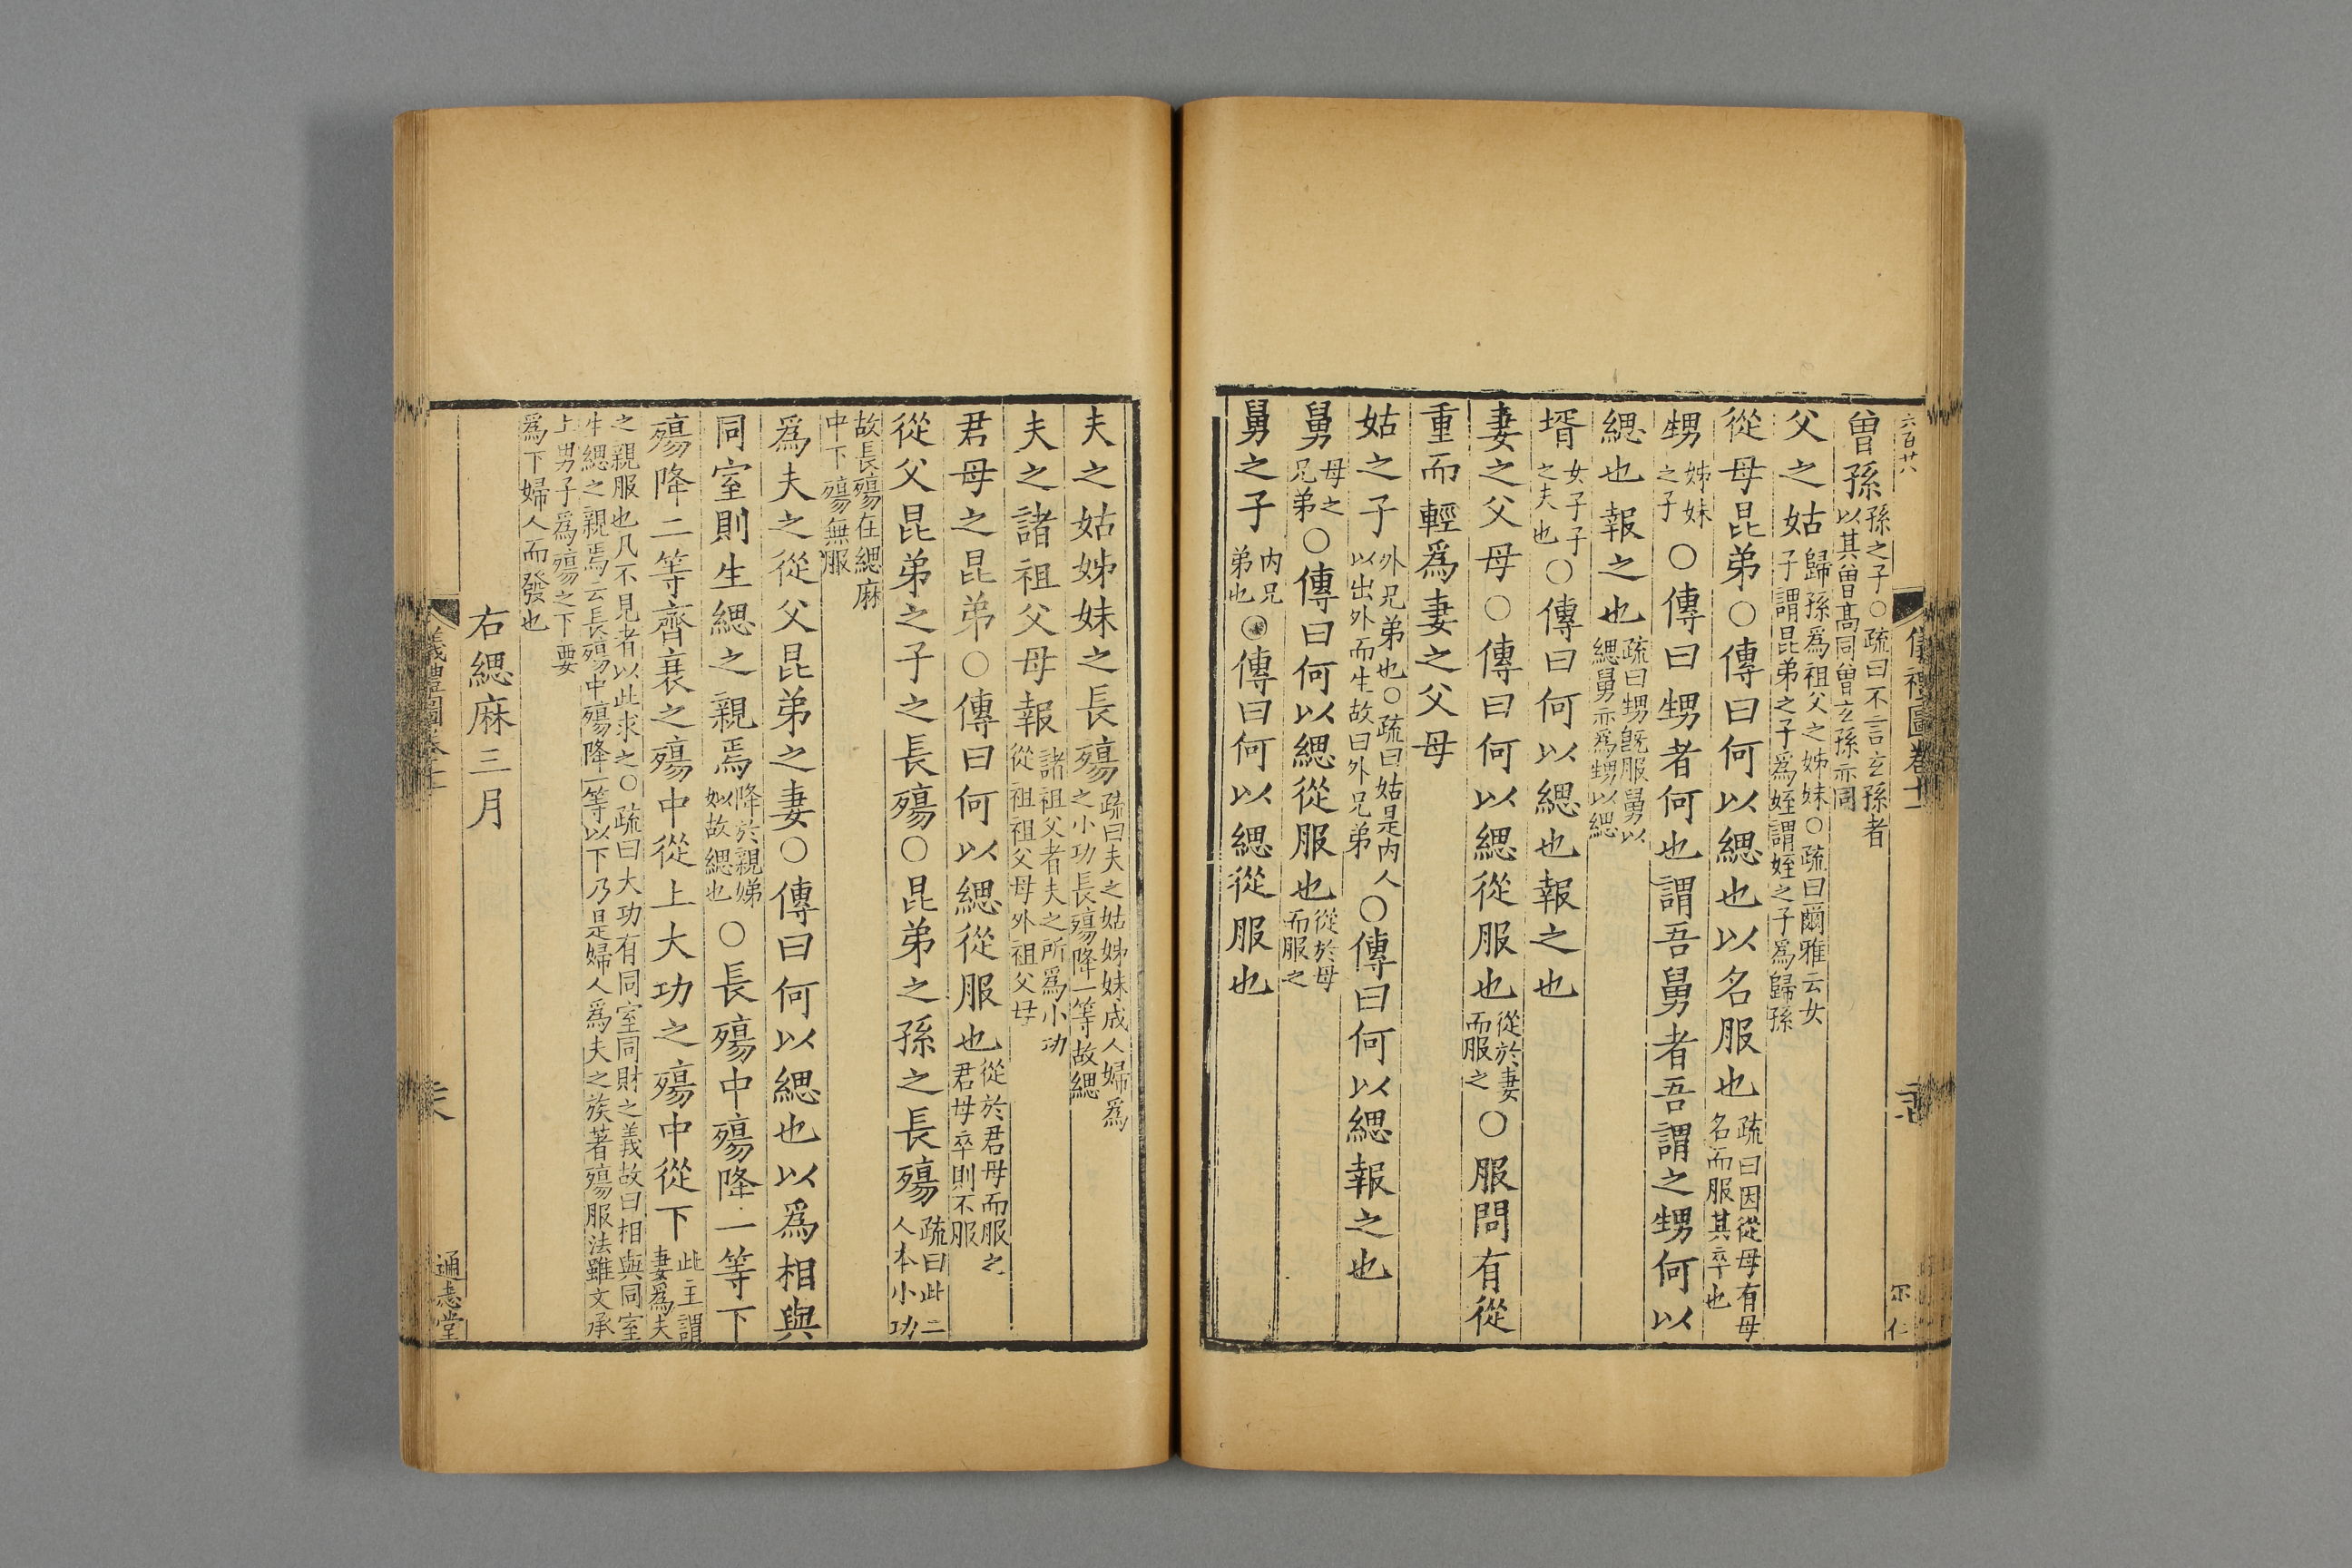 六百廿八
儀禮圖卷十一
尔仁
曾孫孫之子○疏曰不言玄孫者以其曾高同曾玄孫亦同
父之姑歸孫爲祖父之姊妹○疏曰爾雅云女子謂昆弟之子爲姪謂姪之子爲歸孫
從母昆弟○傳曰何以緦也以名服也疏曰因從母有母名而服其卒也
甥姊妹之子○傳曰甥者何也謂吾舅者吾謂之甥何以
緦也報之也疏曰甥旣服舅以緦舅亦爲甥以緦
壻女子子之夫也○傳曰何以緦也報之也
妻之父母○傳曰何以緦從服也從於妻而服之○服問有從
重而輕爲妻之父母
姑之子外兄弟也○疏曰姑是內人以出外而生故曰外兄弟○傳曰何以緦報之也
舅母之兄弟○傳曰何以緦從服也從於母而服之
舅之子內兄弟也○傳曰何以緦從服也
夫之姑姊妹之長殤疏曰夫之姑姊妹成人婦爲之小功長殤降一等故緦
夫之諸祖父母報諸祖父者夫之所爲小功從祖祖父母外祖父母
君母之昆弟○傳曰何以緦從服也從於君母而服之君母卒則不服
從父昆弟之子之長殤○昆弟之孫之長殤疏曰此二人本小功
故長殤在緦麻中下殤無服
爲夫之從父昆弟之妻○傳曰何以緦也以爲相與
同室則生緦之親焉降於親娣姒故緦也○長殤中殤降一等下
殤降二等齊衰之殤中從上大功之殤中從下此主謂妻爲夫
之親服也凡不見者以此求之○疏曰大功有同室同財之義故曰相與同室生緦之親焉云長殤中殤降一等以下乃是婦人爲夫之族著殤服法雖文承
上男子爲殤之下要爲下婦人而發也
右緦麻三月
儀禮圖卷十一
通志堂